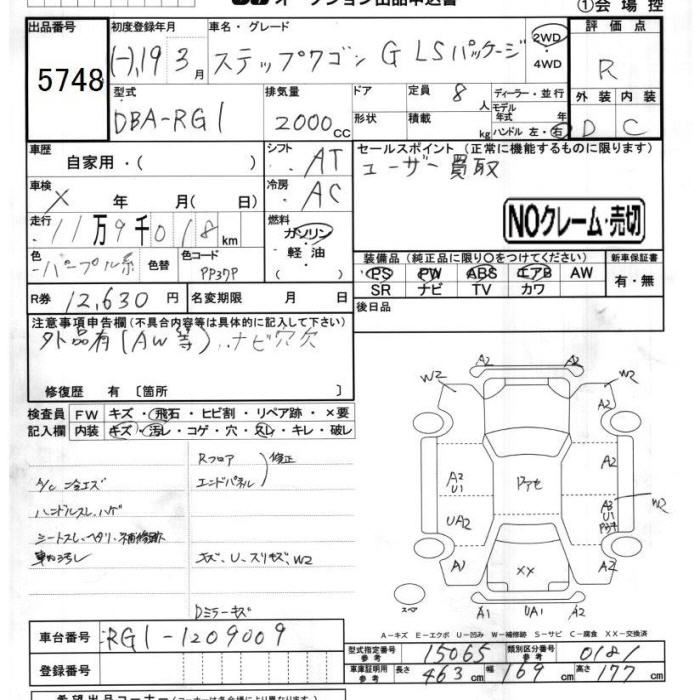 オークション出品申込書
①会場控
出品番号 初度登録年月 車名・グレード 評価点
5748 (-), 19 3月 ステップワゴン G LSパッケージ 2WD・4WD R
型式 排気量 ドア 定員 8人 ディーラー・並行 外装 内装
DBA-RG1 2000cc 形状 積載 kg モデル年式 年 ハンドル 左・右 D C
車歴 シフト セールスポイント(正常に機能するものに限ります)
自家用・( ) AT ユーザー買取
車検 冷房
X 年 月( 日) AC
NOクレーム・売切
走行 燃料
11万9千018km ガソリン・軽油・( )
色 色替 色コード 装備品(純正品に限り○をつけてください) 新車保証書
パープル系 PP37P PS PW ABS エアB AW 有・無
SR ナビ TV カワ
R券 12,630円 名変期限 月 日 後日品
注意事項申告欄(不具合内容等は具体的に記入して下さい)
外品有(AW等)、ナビ穴欠
修復歴 有〔箇所 〕
検査員 FW キズ・飛石・ヒビ割・リペア跡・×要
記入欄 内装 キズ・汚レ・コゲ・穴・スレ・キレ・破レ
Rフロア
エンドパネル
修正
A/C 冷エズ
ハンドルスレ、ハゲ
シートスレ、ヘタリ、補修跡
車内汚し
キズ、U、スリキズ、W2
Dミラーキズ
A2 A2
W2 W2
A2
A2 A2
U1
A3
U1
W2
UA2
AU A2
XX
スペア
A1 UA1 A2
A-キズ E-エクボ U-凹み W-補修跡 S-サビ C-腐食 XX-交換済
車台番号 RG1-1209009
型式指定番号 参考 15065 類別区分番号 参考 0181
登録番号
車庫証明用 参考 長さ 463cm 幅 169cm 高さ 177cm
希望出品コーナー